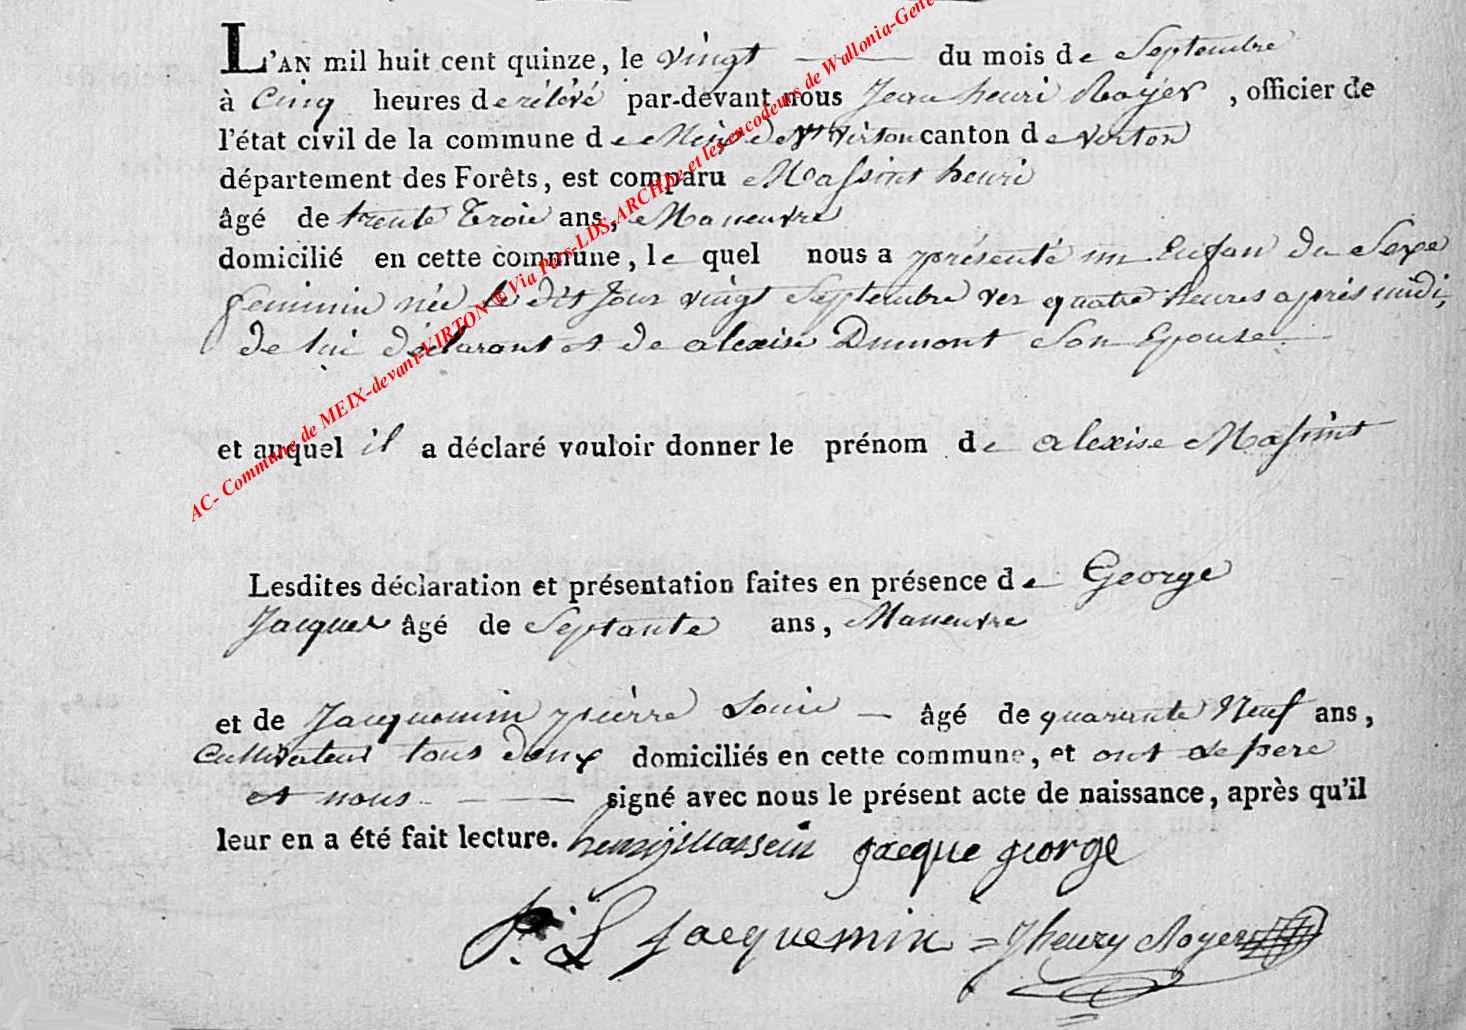 L'AN mil huit cent quinze, le vingt du mois de Septembre
à Cinq heures de rélévé par-devant nous Jean henri Royer, officier de
l'état civil de la commune de Meix dvt virton canton de virton
département des Forêts, est comparu Massint henri
âgé de trente Trois ans, Maneuvre
domicilié en cette commune, le quel nous a présenté un Enfan du Sexe
feminin née le dit Jour vingt Septembre ver quatre heures après midi,
de lui déclarant et de alexise Dumont Son Epouse
et auquel il a déclaré vouloir donner le prénom de alexise Massint
Lesdites déclaration et présentation faites en présence de George
Jacques âgé de Septante ans, Maneuvre
et de Jacquemin pierre Louis âgé de quarante Neuf ans,
Cultivateur tous deux domiciliés en cette commune, et ont le pere
et nous signé avec nous le présent acte de naissance, après qu'il
leur en a été fait lecture. henry massein jacque george
P. L jacquemin = Jhenry Royer
AC- Commune de MEIX-devant-VIRTON ® Via Pers-LDS-ARCH.be et les encodeurs de Wallonia-Gene